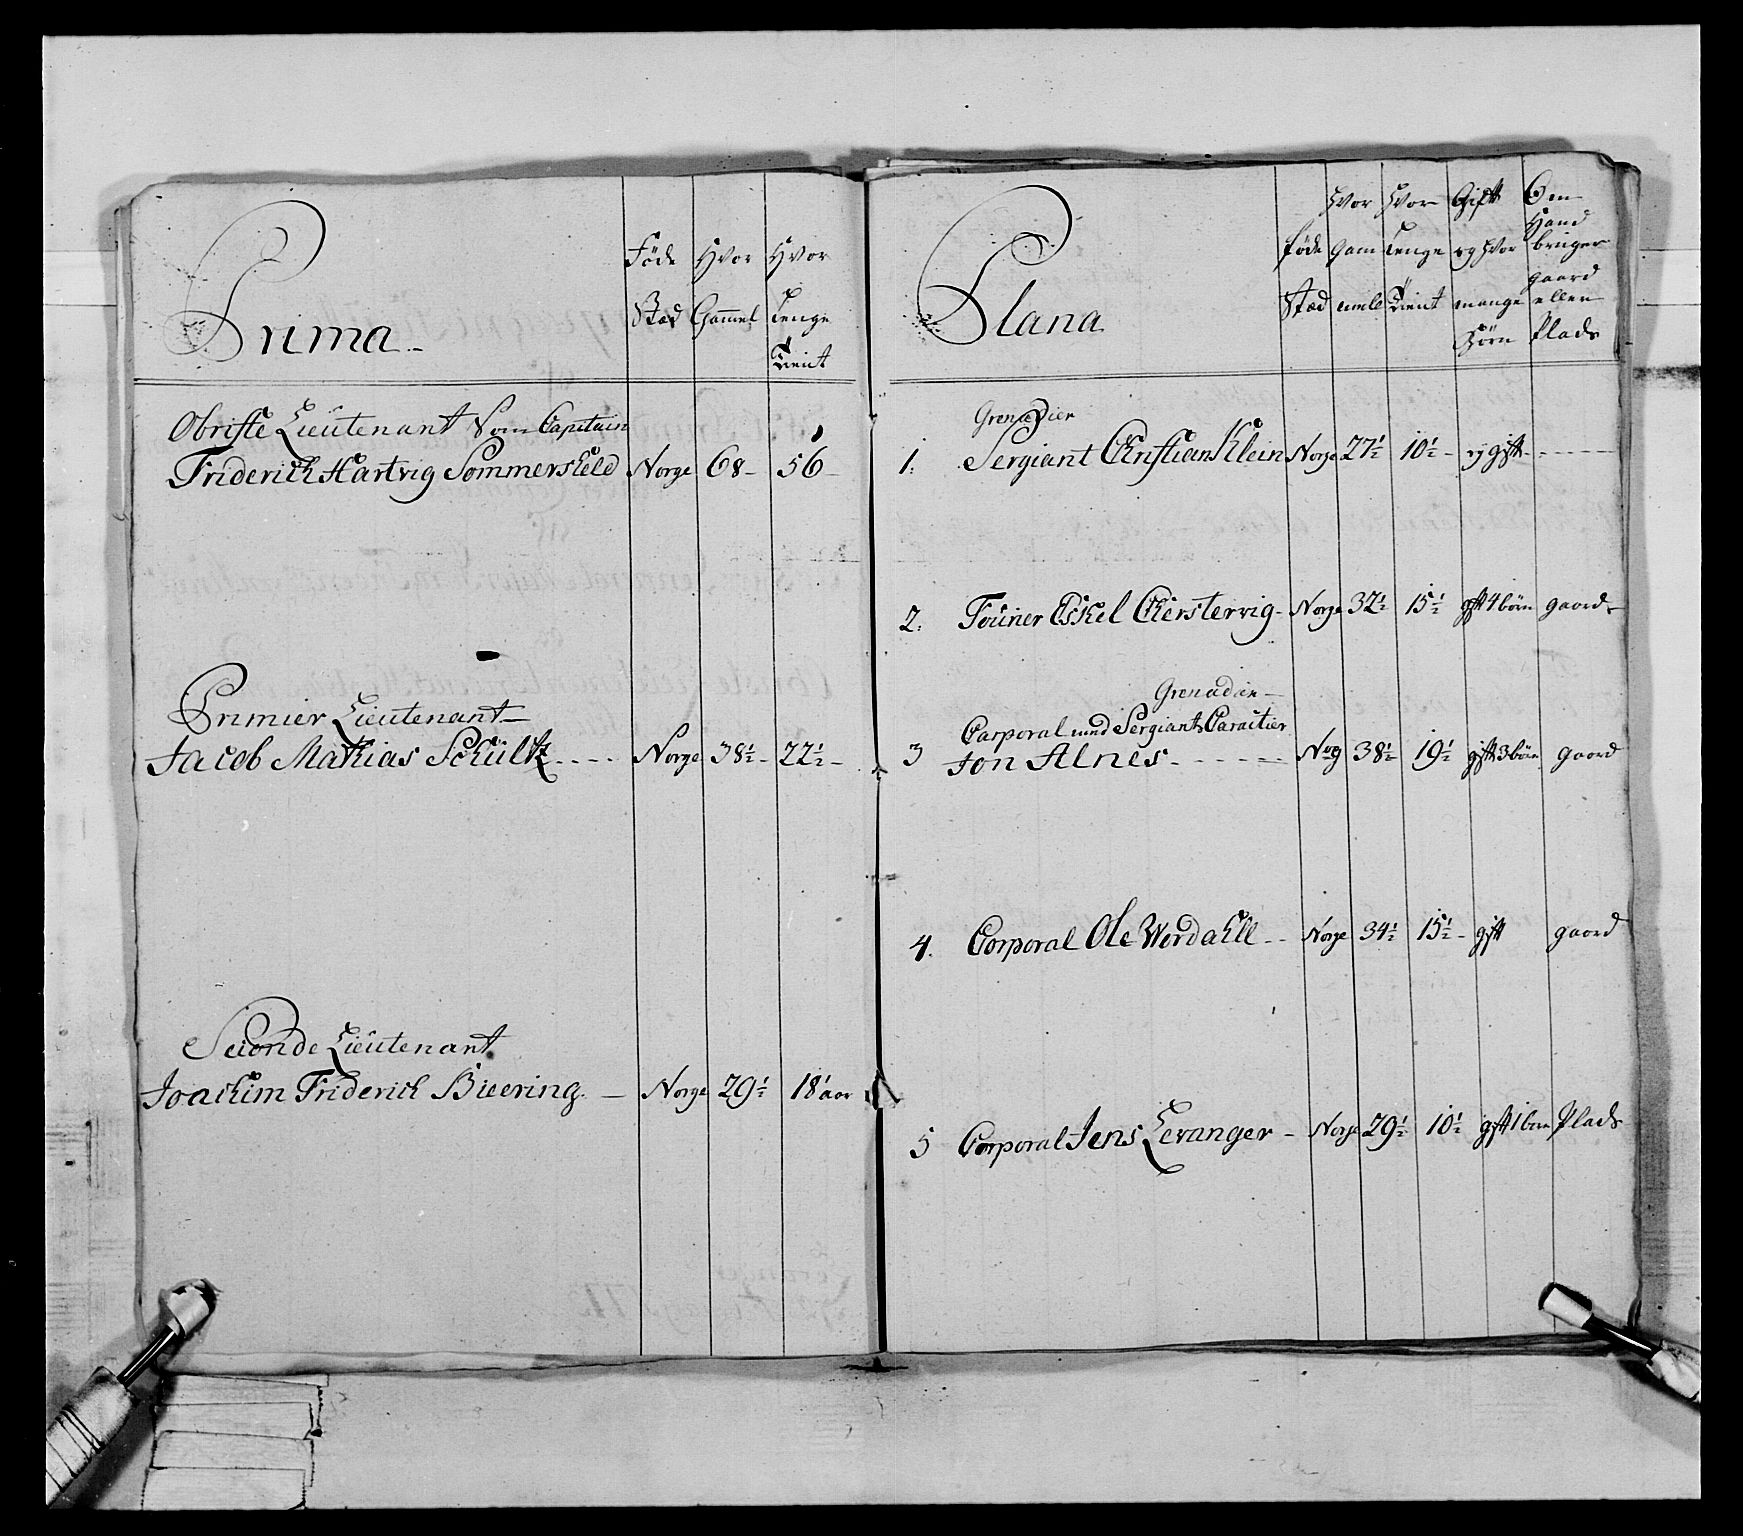 Prima
Føde Stæd
Hvor Gammel
Hvor Lenge Tient
Obriste Lieutenant Som Capitain
Friderich Hartvig Sommerskeld Norge 68 - 56 -
Premier Lieutenant
Jacob Mathias Schültz Norge 38½ - 22½ -
Seconde Lieutenant
Joachim Friderich Bieering - Norge 29½ 18 aar
Plana
føde Stæd
Hvor Gam mel
Hvor Lenge Tient
Gift og Hvor mange Børn
Om Hand bruger gaard eller Plads
Grenadier
1. Sergiant Christian Klein Norge 27½ 10½ - ej gift
2. Fourier Eskel Cherstervig - Norge 32½ 15½ gift 4 børn gaard
Grenadier
Corporal med Sergiants Caracter
3 Jon Alnes Norg 38½ 19½ gift 3 børn gaard
4. Corporal Ole Werdahll Norge 34½ 15½ - gift gaard
5 Corporal Jens Levanger - Norge 29½ 10½ gift 1 barn Plads